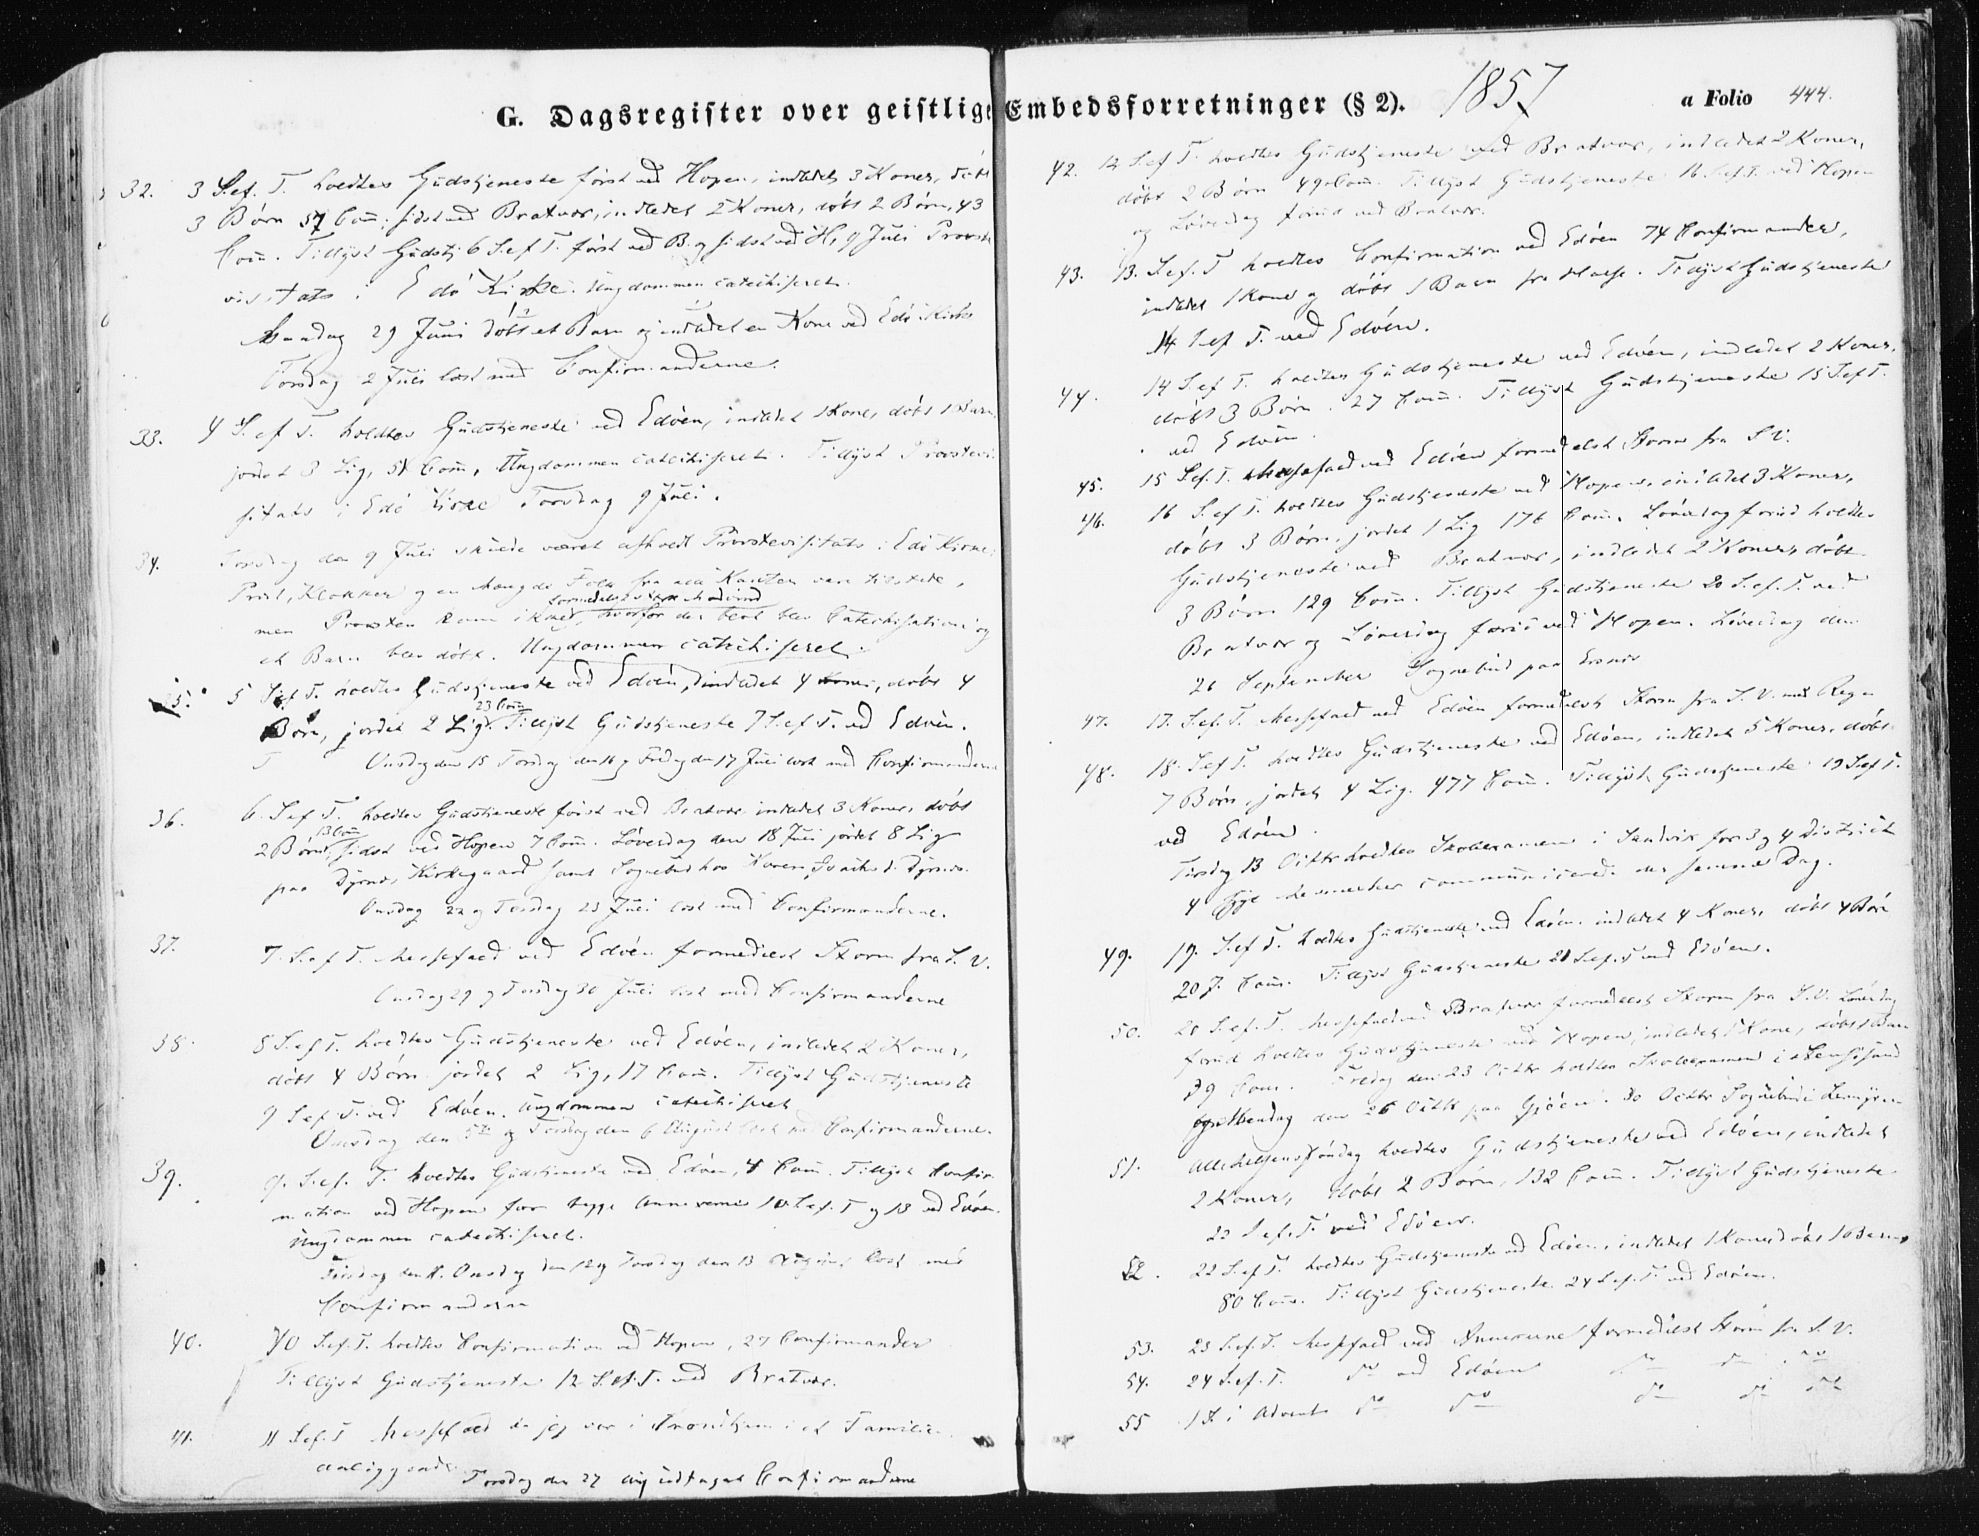 G. Dagsregister over geistlige Embedsforretninger (§ 2). 1857 a Folio 444.
32. 3 S. ef. T. holdtes Gudstjeneste först ved Hopen, indledet 3 Koner, döbt
3 Börn 57 Com; sidst ved Bratvær, indledet 2 Koner, döbt 2 Börn, 43
Com. Tillyst Gudstj 6 S. ef T. först ved B. og sidst ved H, 9 Juli Provste
visitats i Edö Kirke. Ungdommen catechiseret.
Mandag 29 Juni döbt et Barn og indledet en Kone ved Edö Kirke
Torsdag 2 Juli læst med Confirmanderne.
33. 4 S. ef T. holdtes Gudstjeneste ved Edöen, indledet 1 Kone, döbt 1 Barn
jordet 3 Lig, 51 Com, Ungdommen catechiseret. Tillyst Provstevi
sitats i Edö Kirke Torsdag 9 Juli.
34. Torsdag den 9 Juli skulde været afholdt Provstevisitats i Edö Kirke,
Præst, Klokker og en Mængde Folk fra alle Kanter vare tilstede,
men Provsten kom ikke formedelst stærk Modvind, hvorfor der blot blev Catechisation og
et Barn blev döbt. Ungdommen catechiseret.
35. 5 S. ef T. holdtes Gudstjeneste ved Edöen, indledet 4 Koner, döbt 4
Börn, jordet 2 Lig. 23 Com. Tillyst Gudstjeneste 7 S. ef T. ved Edöen.
Onsdag den 15 Torsdag den 16 og Fredag den 17 Juli læst med Confirmanderne
36. 6. S. ef T. holdtes Gudstjeneste först ved Bratvær indledet 3 Koner döbt
2 Börn, 13 Com, sidst ved Hopen 7 Com. Löverdag den 18 Juli jordet 8 Lig
paa Dyrnæs Kirkegaard samt Sognebud hos Karen i Dyrnæs.
Onsdag 22 og Torsdag 23 Juli læst med Confirmanderne.
37. 7. S. ef T. Messefald ved Edöen formedelst Storm fra S. V.
Onsdag 29 og Torsdag 30 Juli læst med Confirmanderne
38. 8 S. ef T. holdtes Gudstjeneste ved Edöen, indledet 2 Koner,
döbt 4 Börn jordet 2 Lig, 17 Com. Tillyst Gudstjeneste
9 S. ef T. ved Edöen. Ungdommen catechiseret
Onsdag den 5te og Torsdag den 6 August læst med Confirmanderne.
39. 9. S. ef. T. holdtes Gudstjeneste ved Edöen, 4 Com. Tillyst Confir
mation ved Hopen for begge Annexerne 10 S. ef. T og 13 ved Edöen.
Ungdommen catechiseret.
Tirsdag den 11. Onsdag den 12 og Torsdag den 13 August læst med
Confirmanderne
40. 10 S. ef. T. holdtes Confirmation ved Hopen, 27 Confirmander
Tillyst Gudstjeneste 12 S. ef. T. ved Bratvær.
41. 11 S. ef. T Messefald da jeg var i Trondhjem i et Familie
anliggende
Torsdag den 27 Aug udtaget Confirmanderne
42. 12 S. ef T. holdtes Gudstjeneste ved Bratvær, indledet 2 Koner,
döbt 2 Börn 49 Com. Tillyst Gudstjeneste 16 S. ef. T. ved Hopen
og Löverdag forud ved Bratvær.
43. 13. S. ef. T holdtes Confirmation ved Edöen 74 Confirmander,
indledet 1 Kone og döbt 1 Barn fra Halse. Tillyst Gudstjeneste
14 S. ef T. ved Edöen.
44. 14 S. ef T. holdtes Gudstjeneste ved Edöen, indledet 2 Koner,
döbt 3 Börn. 27 Com. Tillyst Gudstjeneste 15 S. ef T.
ved Edöen.
45. 15 S. ef. T. Messefald ved Edöen formedelst Storm fra S. V.
46. 16 S. ef T. holdtes Gudstjeneste ved Hopen, indledet 3 Koner,
döbt 3 Börn, jordet 1 Lig 176 Com. Löverdag forud holdtes
Gudstjeneste ved Bratvær, indledet 2 Koner, döbt
3 Börn 129 Com. Tillyst Gudstjeneste 20 S. ef. T. ved
Bratvær og Löverdag forud ved Hopen. Löverdag den
26 September Sognebud paa
47. 17. S. ef. T. Messefald ved Edöen formedelst Storm fra S. V. med Regn
48. 18. S. ef T. holdtes Gudstjeneste ved Edöen, indledet 5 Koner, döbt
7 Börn, jordet 4 Lig. 477 Com. Tillyst Gudstjeneste 19 S. ef T.
ved Edöen.
Tirsdag 13 Octbr holdtes Skoleexamen i Sandvik for 3 og 4 District
4 syge Mennesker communicerede der samme Dag.
49. 19. S. ef T. holdtes Gudstjeneste ved Edöen indledet 4 Koner, döbt 4 Börn
207. Com. Tillyst Gudstjeneste 21 S. ef. T ved Edöen.
50. 20 S. ef. T. Messefald ved Bratvær formedelst Storm fra S. V. Löverdag
forud holdtes Gudstjeneste ved Hopen, indledet 1 Kone, döbt 1 Barn
39 Com. Fredag den 23 Octbr holdtes Skoleexamen i
og Mandag den 26 Octbr paa Gjöen. 30 Octbr Sognebud i
51. Allehelgens Söndag holdtes Gudstjeneste ved Edöen, indledet
2 Koner, döbt 2 Börn, 132 Com. Tillyst Gudstjeneste
22 S. ef. T. ved Edöen.
52. 22 S. ef T. holdtes Gudstjeneste ved Edöen, indledet 1 Kone, döbt 1 Barn,
80 Com. Tillyst Gudstjeneste 24 S. ef. T. ved Edöen.
53. 23 S. ef. T. Messefald ved Annexerne formedelst Storm fra S. V.
54. 24 S. ef. T. do ved Edöen do do do
55 1 S. i Advent do do do do do